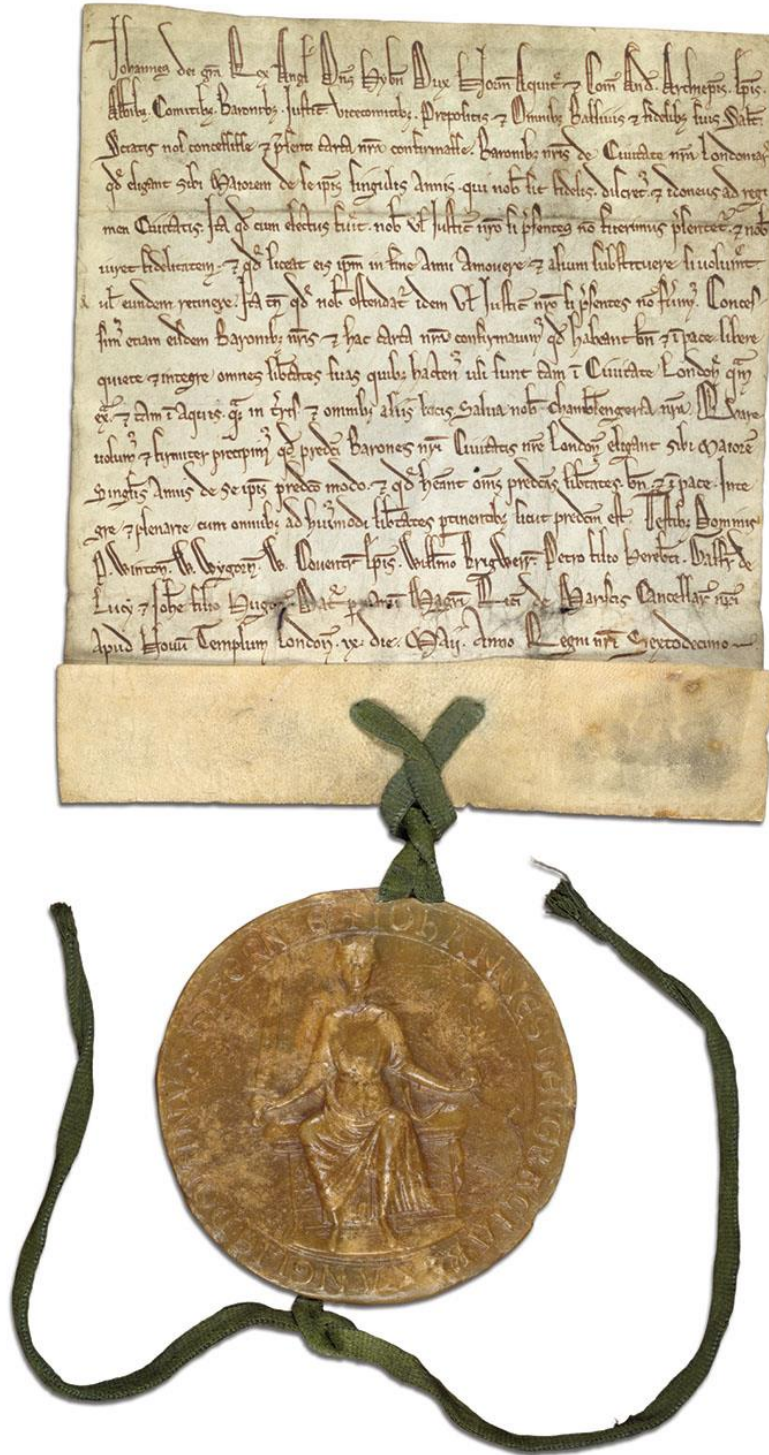 Johannes dei gra Rex Angl Dns Hybn Dux Norm Aquit ⁊ Com And. Archiepis. Epis.
Abbibz. Comitibz. Baronibz. Justic. Vicecomitibz. Prepositis ⁊ Omnibz Ballivis ⁊ fidelibz suis Salt.
Sciatis nos concessisse ⁊ psenti carta nra confirmasse. Baronibz nris de Civitate nra Londoniar
qd eligant sibi Maiorem de se ipis singulis Annis. qui nob sit fidelis. discret. ⁊ idoneus ad regi
men Civitatis. Ita qd cum electus fuit. nob vl Justic nro si psentes no fuerimus psentet. ⁊ nob
iuret fidelitatem. ⁊ qd liceat eis ipm in fine Anni amovere ⁊ alium substituere si voluint.
vl eundem retinere. Ita tn qd nob ostendat idem vl Justic nro si psentes no fuim. Conces
sim etiam eisdem Baronibz nris ⁊ hac carta nra confirmavim qd habeant bn ⁊ i pace libere
quiete ⁊ integre omnes libtates suas quibz hacten usi sunt tam i Civitate London qm
ex. ⁊ tam i aquis. qm in tris ⁊ omnibz aliis locis. Salva nob chamblengeria nra. Quare
volum ⁊ firmiter precipim qd predci Barones nri Civitatis nre London eligant sibi Maiore
Singlis Annis de se ipis predco modo. ⁊ qd heant oms predcas libtates bn ⁊ i pace. Inte
gre ⁊ plenarie cum omnibz ad huimodi libtates ptinentibz sicut predcm est. Testibz Dominis
P. Winton. W. Wygorn. W. Coventr Epis. Willmo Brigwerr. Petro filio Hereberti. Galfr de
Lucy ⁊ Johe filio Hugon. Dat p manu Magri Rici de Mariscis Cancellar nri
apud Novu Templum London. ix. die. Maij. Anno Regni nri Sextodecimo
IOHANNES DEI GRACIA REX ANGLIE DOMINUS